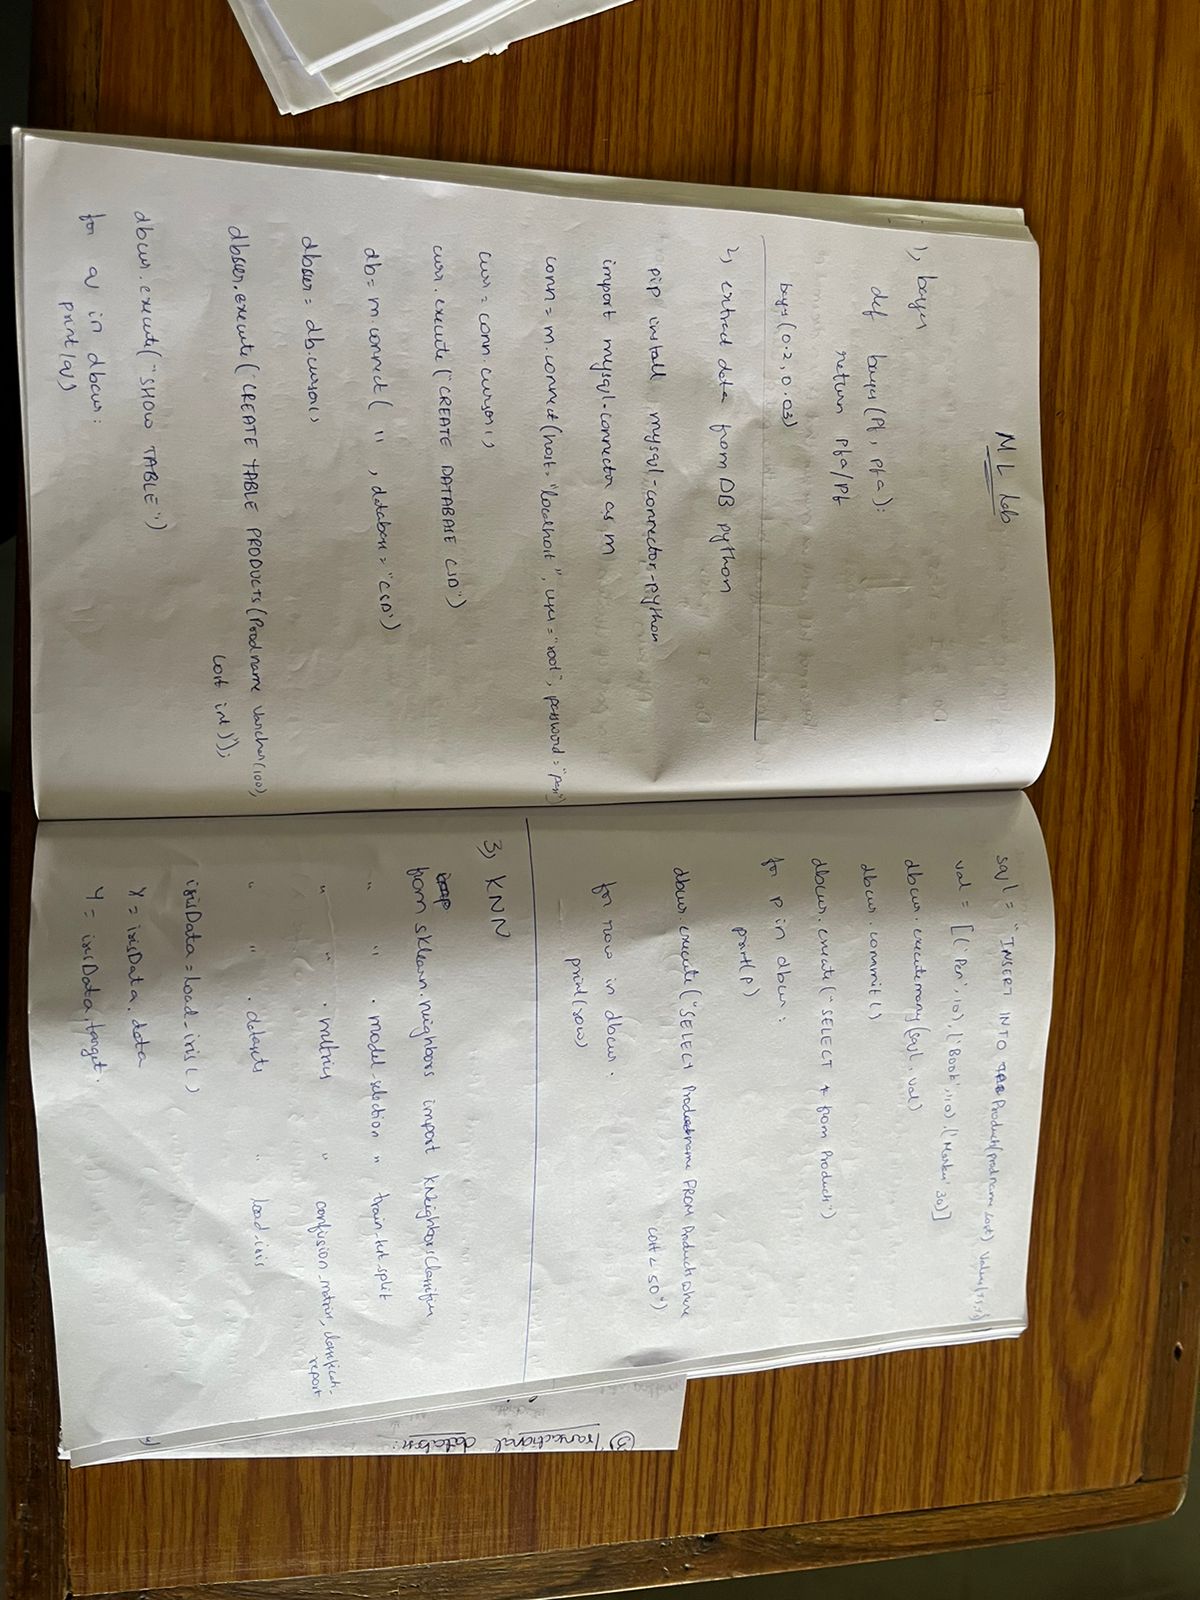 ML Lab
1, bayes
def bayes(Pf, Pfa):
return pfa/Pf
bayes(0.2, 0.03)
2, extract data from DB python
pip install mysql-connector-python
import mysql-connector as m
conn = m.connect(host="localhost", user="root", password="pass")
curr = conn.cursor()
curr.execute("CREATE DATABASE CSD")
db = m.connect( " , database = "CSD")
dbcur = db.cursor()
dbcur.execute("CREATE TABLE PRODUCTS(Prodname varchar(100),
cost int)");
dbcur.execute("SHOW TABLE")
for a in dbcur:
print(a)
sql = "INSERT INTO Products(prodname, cost) values
val = [('Pen', 10), ('Book', 10), ('Marker' 30)]
dbcur.executemany(sql, val)
dbcur.commit()
dbcur.execute("SELECT * from Products")
for p in dbcur:
print(p)
dbcur.execute("SELECT Prodname FROM Products where
cost < 50")
for row in dbcur.
print(row)
3, KNN
from sklearn.neighbors import KNeighborsClassifier
" " . model_selection " train_test_split
" " . metrics " confusion_matrix, classificati-
report
" " . datasets " load_iris
irisData = load_iris()
X = irisData.data
Y = irisData.target.
③ Transactional database: